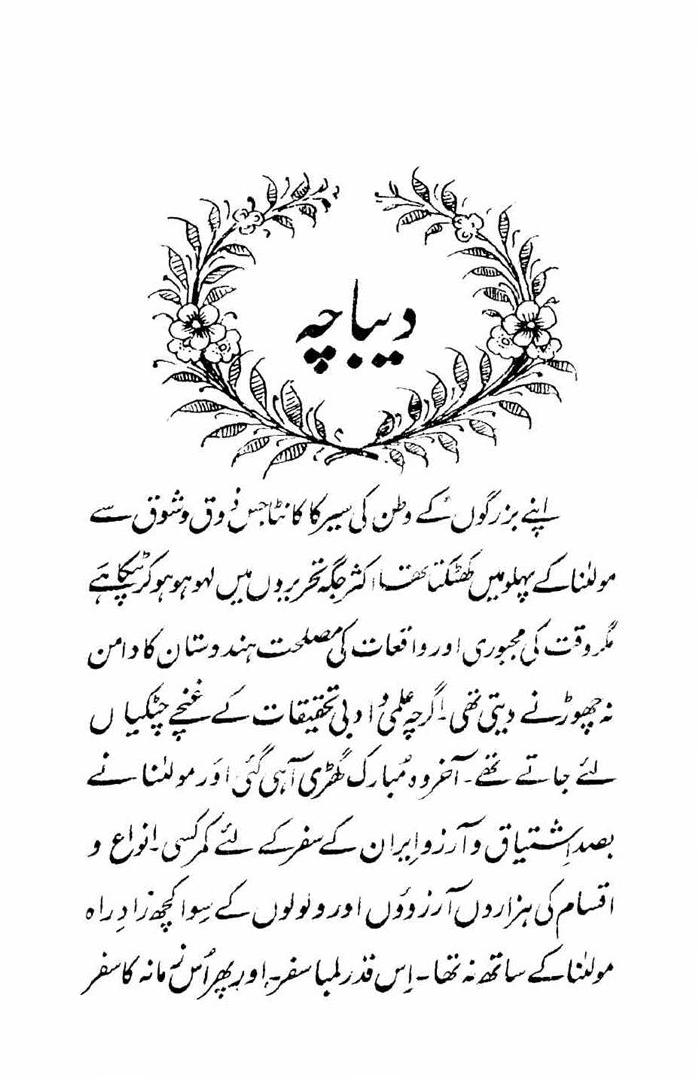 دیباچہ
اپنے بزرگوں کے وطن کی سیر کا کانٹا جس ذوق و شوق سے
مولٰنا کے پہلو میں کھٹکتا تھا اکثر جگہ تحریروں میں لہو ہو ہو کر ٹپکا ہے
مگر وقت کی مجبوری اور واقعات کی مصلحت ہندوستان کا دامن
نہ چھوڑنے دیتی تھی۔ اگرچہ علمی و ادبی تحقیقات کے غنچے چٹکیاں
لئے جاتے تھے۔ آخر وہ مُبارک گھڑی آ ہی گئی اور مولٰنا نے
بصد اِشتیاق و آرزو اِیران کے سفر کے لئے کمر کسی۔ انواع و
اقسام کی ہزاروں آرزوؤں اور ولولوں کے سِوا کچھ زادِ راہ
مولٰنا کے ساتھ نہ تھا۔ اِس قدر لمبا سفر۔ اور پھر اُس زمانہ کا سفر